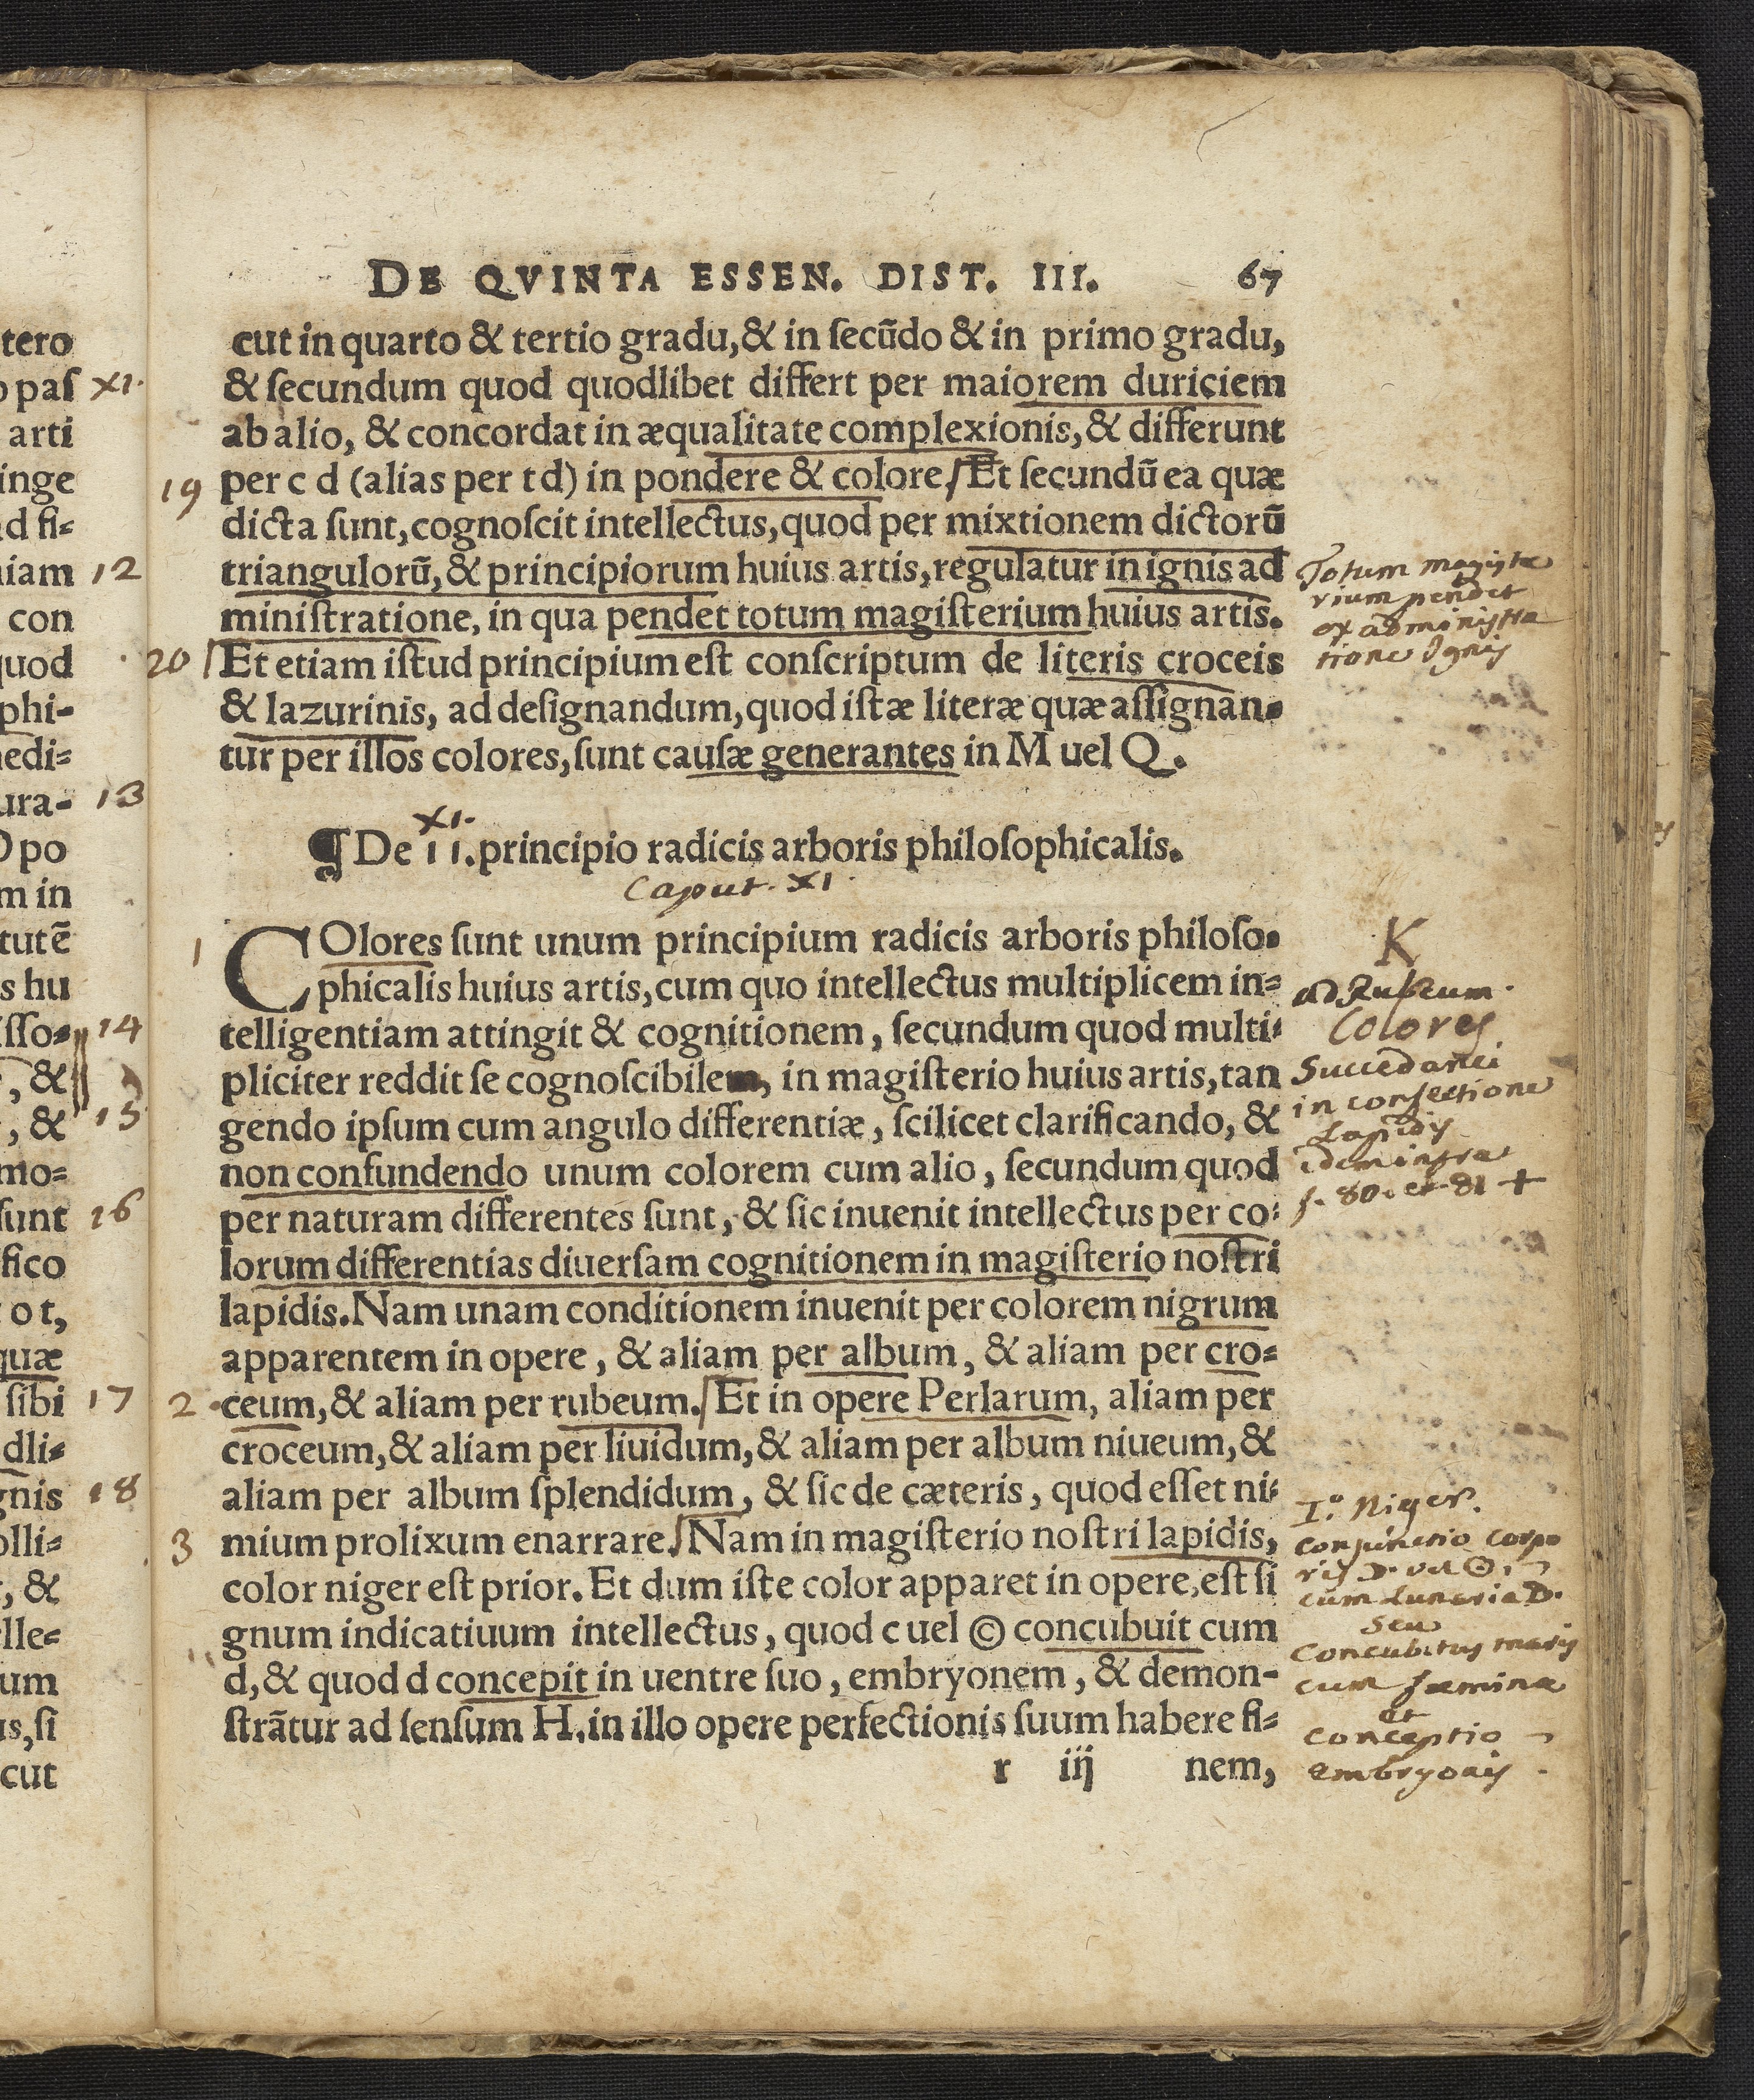 DE QVINTA ESSEN. DIST. III. 67
cut in quarto & tertio gradu, & in ſecũdo & in primo gradu,
& ſecundum quod quodlibet differt per maiorem duriciem
ab alio, & concordat in æqualitate complexionis, & differunt
19 per c d (alias per t d) in pondere & colore / Et ſecundũ ea quæ
dicta ſunt, cognoſcit intellectus, quod per mixtionem dictorũ
triangulorũ, & principiorum huius artis, regulatur in ignis ad
miniſtratione, in qua pendet totum magiſterium huius artis.
20 / Et etiam iſtud principium eſt conſcriptum de literis croceis
& lazurinis, ad deſignandum, quod iſtæ literæ quæ aſſignan-
tur per illos colores, ſunt cauſæ generantes in M uel Q.
Totum magiste
rium pendet
ex administra
tione Ignis
XI.
¶ De 11. principio radicis arboris philoſophicalis.
Caput. XI.
1 COlores ſunt unum principium radicis arboris philoſo-
phicalis huius artis, cum quo intellectus multiplicem in-
telligentiam attingit & cognitionem, ſecundum quod multi-
pliciter reddit ſe cognoſcibilem, in magiſterio huius artis, tan
gendo ipſum cum angulo differentiæ, ſcilicet clarificando, &
non confundendo unum colorem cum alio, ſecundum quod
per naturam differentes ſunt, & ſic inuenit intellectus per co-
lorum differentias diuerſam cognitionem in magiſterio noſtri
lapidis. Nam unam conditionem inuenit per colorem nigrum
apparentem in opere, & aliam per album, & aliam per cro-
2 ceum, & aliam per rubeum. / Et in opere Perlarum, aliam per
croceum, & aliam per liuidum, & aliam per album niueum, &
aliam per album ſplendidum, & ſic de cæteris, quod eſſet ni-
3 mium prolixum enarrare. / Nam in magiſterio noſtri lapidis,
color niger eſt prior. Et dum iſte color apparet in opere, eſt ſi
gnum indicatiuum intellectus, quod c uel © concubuit cum
d, & quod d concepit in uentre ſuo, embryonem, & demon-
ſtrãtur ad ſenſum H. in illo opere perfectionis ſuum habere fi-
r iij nem,
K
ad Rubeum.
Colores
Succedanei
in confectione
Lapidis
idem infra
f. 80. et 81 +
I.º Niger.
conjunctio corpo
ris ☽. vel ☉,
cum Lunaria ☽.
seu
Concubitus maris
cum fæmina
et
conceptio
embryonis.
tero
pas XI.
arti
inge
d fi-
iam 12
con
quod
phi-
edi-
ura- 13
po
m in
tutẽ
s hu
ſſo- 14
, &
, & 15
mo-
ſunt 16
fico
o t,
quæ
ſibi 17
dli-
gnis 18
olli-
, &
lle-
um
us, ſi
cut